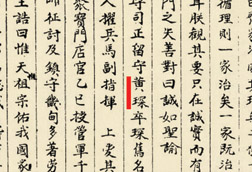 理則一家治矣一家既
耳朕觀其要只在誠實而有
門之善對曰誠如聖諭
守司正留守黃琛卒琛舊名
人擢兵馬副指揮 上愛其
賓門店官乙巳授管軍千
師征討及鎮守畿甸多著勞
王誥曰惟天祖宗佑我國家